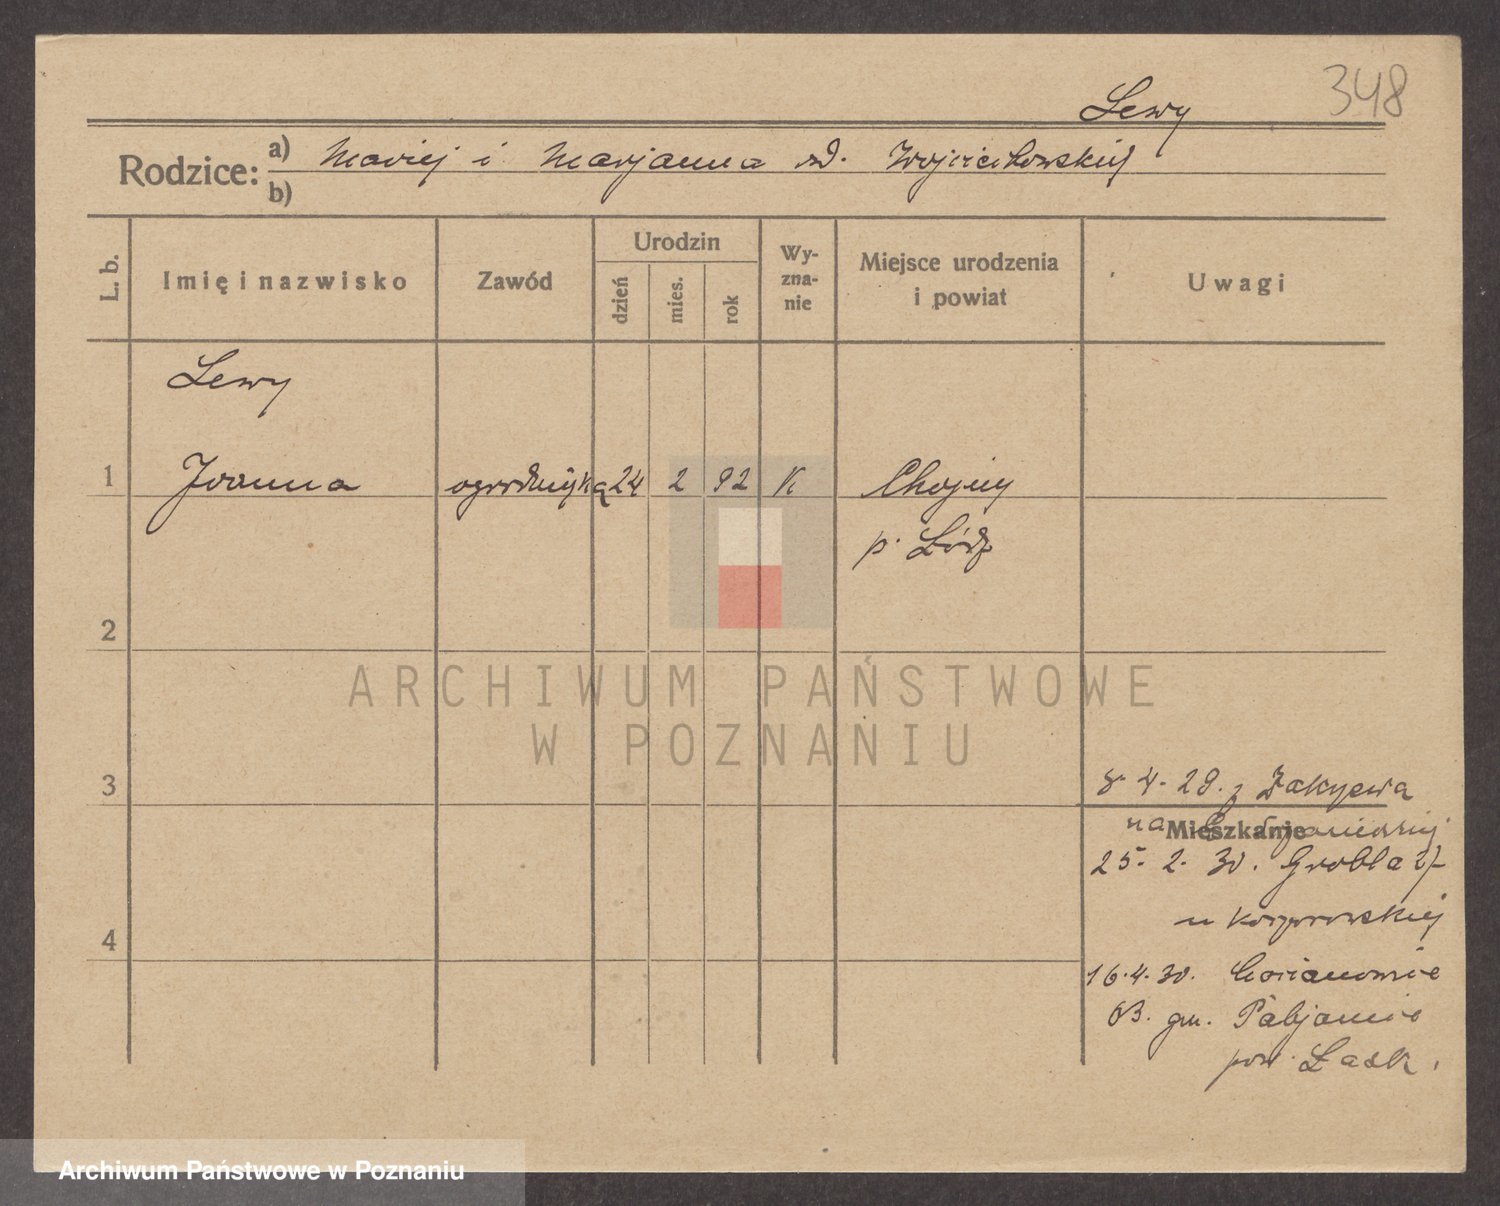 348
Lewy
Rodzice: a) Maciej i Marjanna zd. Wojciechowskiej
b)
L. b. Imię i nazwisko Zawód Urodzin dzień mies. rok Wyznanie Miejsce urodzenia i powiat Uwagi
Lewy
1 Joanna ogrodniczka 24 2 92 K Chojny
p. Łódź
2
ARCHIWUM PAŃSTWOWE
W POZNANIU
3 8. 4. 29. z Zakrzewa
na
Mieszkanie
25. 2. 30. Grobla
u
4
16.4.30.
63. gm. Pabjanic
pow. Łask.
Archiwum Państwowe w Poznaniu